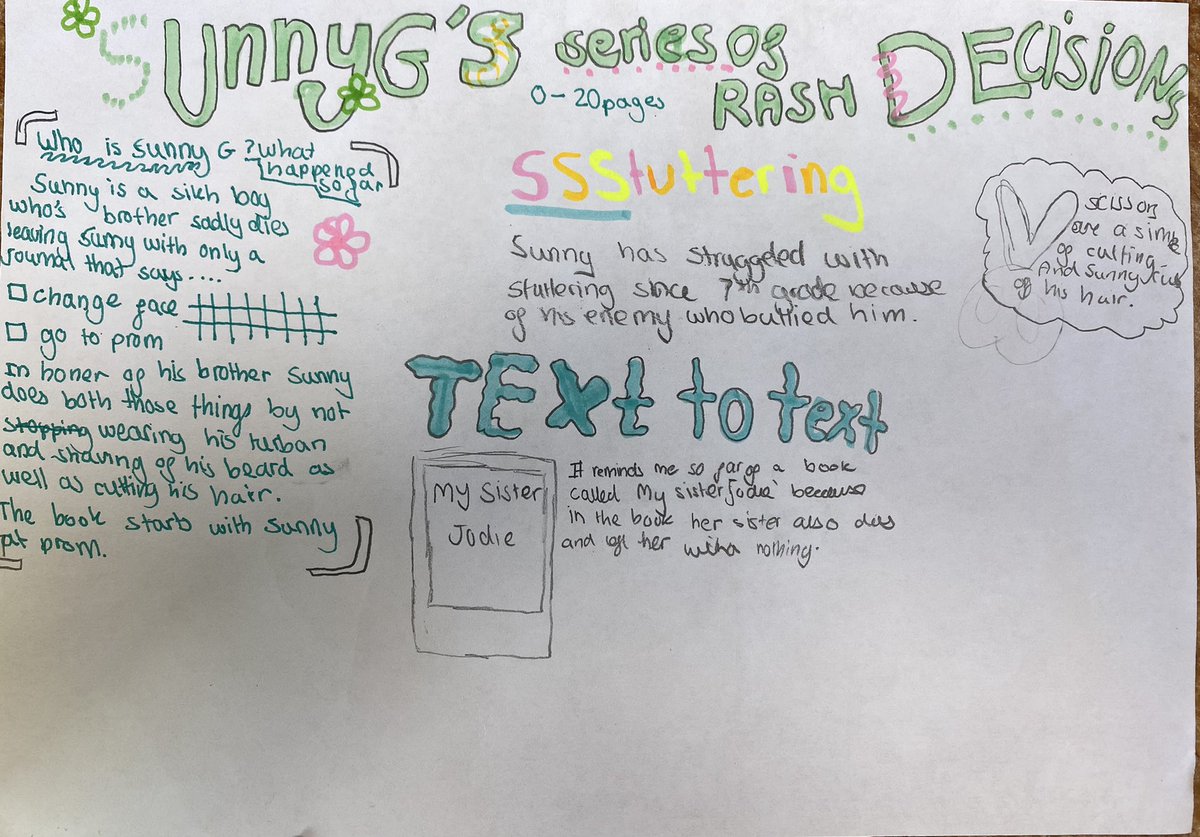 SUnnyG'S series of RASH DECISIONs
0-20pages
Who is sunny G? what
happened
so far
Sunny is a sikh boy
who's brother sadly dies
leaving Sunny with only a
journal that says....
change face
go to prom
In honer of his brother Sunny
does both those things by not
stopping wearing his turban
and shaving of his beard as
well as cutting his hair.
The book starts with Sunny
at prom.
SSStuttering
Sunny has struggeled with
stuttering since 7th grade because
of his enemy who bullied him.
scissors
are a simle
of cutting
And Sunny cuts
of his hair.
TEXt to text
My Sister
Jodie
It reminds me so far of a book
called 'My sister Jodie' because
in the book her sister also dies
and left her with nothing.